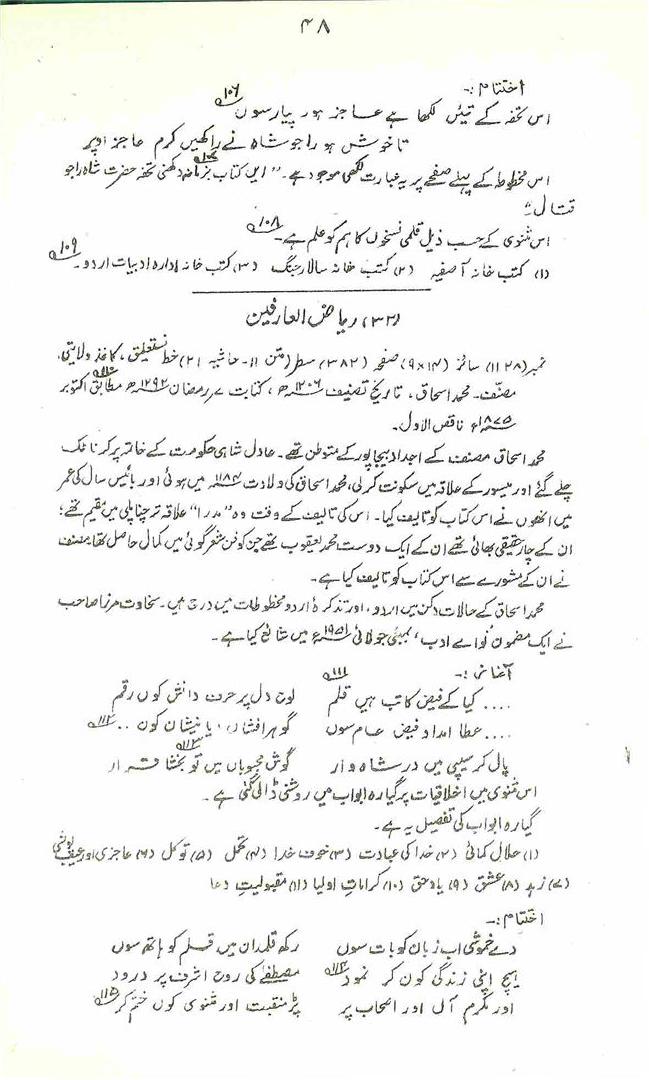 ۴۸
اختتام :-
اس تحفہ کے تیئں لکھا ہے عاجز ہور پیار سوں ۱۰۶
تا خوش ہو راجو شاہ نے راکھیں کرم عاجز اوپر
اس مخطوطہ کے پہلے صفحے پر یہ عبارت لکھی موجود ہے۔ "ایں کتاب بزبان دکھنی تحفہ حضرت شاہ راجو ۱۰۷
قتال"
اس مثنوی کے حسب ذیل قلمی نسخوں کا ہم کو علم ہے۔ ۱۰۸
(۱) کتب خانہ آصفیہ (۲) کتب خانہ سالار جنگ (۳) کتب خانہ ادارہ ادبیات اردو۔ ۱۰۹
(۳۲) ریاض العارفین
نمبر (۱۱۲۸) سائز (۱۴×۹) صفحہ (۳۸۲) سطر (متن ۱۱۔ حاشیہ ۲۱) خط نستعلیق، کاغذ ولایتی،
مصنّف۔ محمد اسحاق، تاریخ تصنیف ۱۲۰۶ھ، کتابت ۷ رمضان ۱۲۹۲ھ مطابق اکتوبر
۱۸۷۵ء ناقص الاول۔
محمد اسحاق مصنف کے اجداد بیجاپور کے متوطن تھے۔ عادل شاہی حکومت کے خاتمہ پر کرناٹک
چلے گئے اور میسور کے علاقہ میں سکونت کر لی، محمد اسحاق کی ولادت ۱۱۸۴ھ میں ہوئی اور بائیس سال کی عمر
میں انھوں نے اس کتاب کو تالیف کیا۔ اس کی تالیف کے وقت وہ "مدرا" علاقہ ترچناپلی میں مقیم تھے؛
ان کے چار حقیقی بھائی تھے ان کے ایک دوست محمد یعقوب تھے جن کو فن شعر گوئی میں کمال حاصل تھا، مصنف
نے ان کے مشورے سے اس کتاب کو تالیف کیا ہے۔
محمد اسحاق کے حالات دکن میں اردو، اور تذکرۂ اردو مخطوطات میں درج ہیں۔ سخاوت مرزا صاحب
نے ایک مضمون نواے ادب، بمبئی جولائی ۱۹۵۱ء میں شائع کیا ہے۔
آغاز :- ۱۱۱
.... کیا کے فیض کاتب ہیں قلم لوح دل پر حرف دانش کوں رقم
.... عطا امداد فیض عام سوں گوہر افشاں نیشان کون .. ۱۱۲
پال کر سیپی میں در شاہ وار گوش محبوباں میں تو بخشا قرار ۱۱۳
اس مثنوی میں اخلاقیات پر گیارہ ابواب میں روشنی ڈالی گئی ہے۔
گیارہ ابواب کی تفصیل یہ ہے۔
(۱) حلال کمائی (۲) خدا کی عبادت (۳) خوف خدا (۴) تحمل (۵) توکل (۶) عاجزی اور عیب پوشی
(۷) زہد (۸) عشق (۹) یاد حق (۱۰) کرامات اولیا (۱۱) مقبولیت دعا
اختتام :-
دے خموشی اب زبان کو بات سوں رکھ قلمدان میں قلم کو ہاتھ سوں
ہیچ اپنی زندگی کون کر نمود ۱۱۴ مصطفےٰ کی روح اشرف پر درود
اور مکرم آل اور اصحاب پر پڑ منقبت اور مثنوی کوں ختم کر ۱۱۵